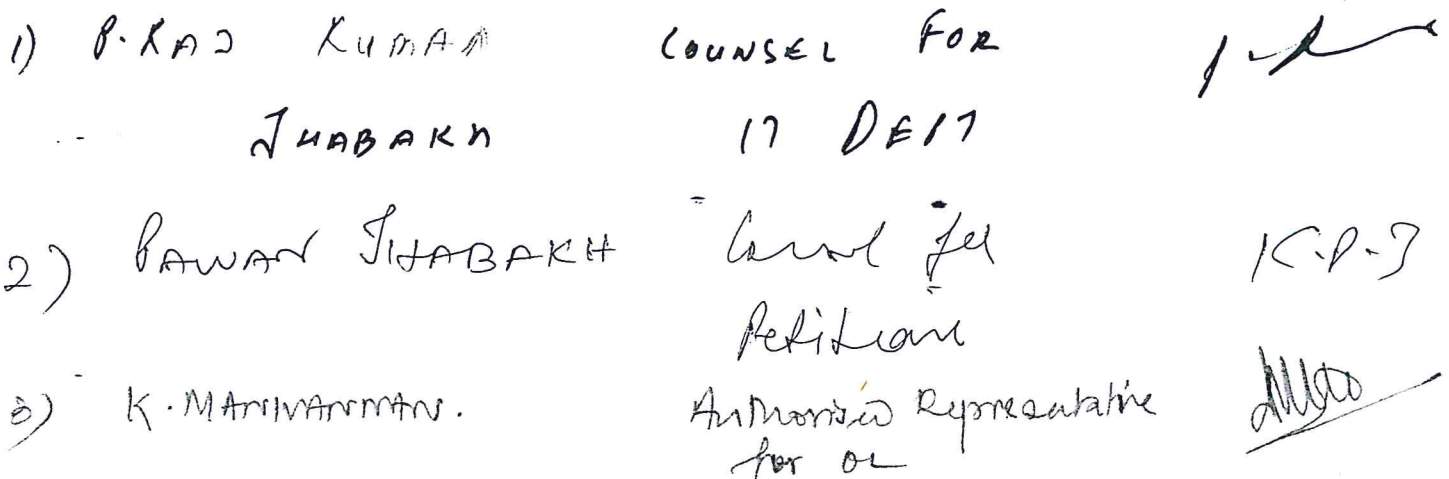 1) P. RAJ KUMAR COUNSEL FOR
JHABAKH
2) PAWAN JHABAKH Counsel for K.P.J
Petitioner
3) K. MANIVANNAN. Authorised Representative
for OL